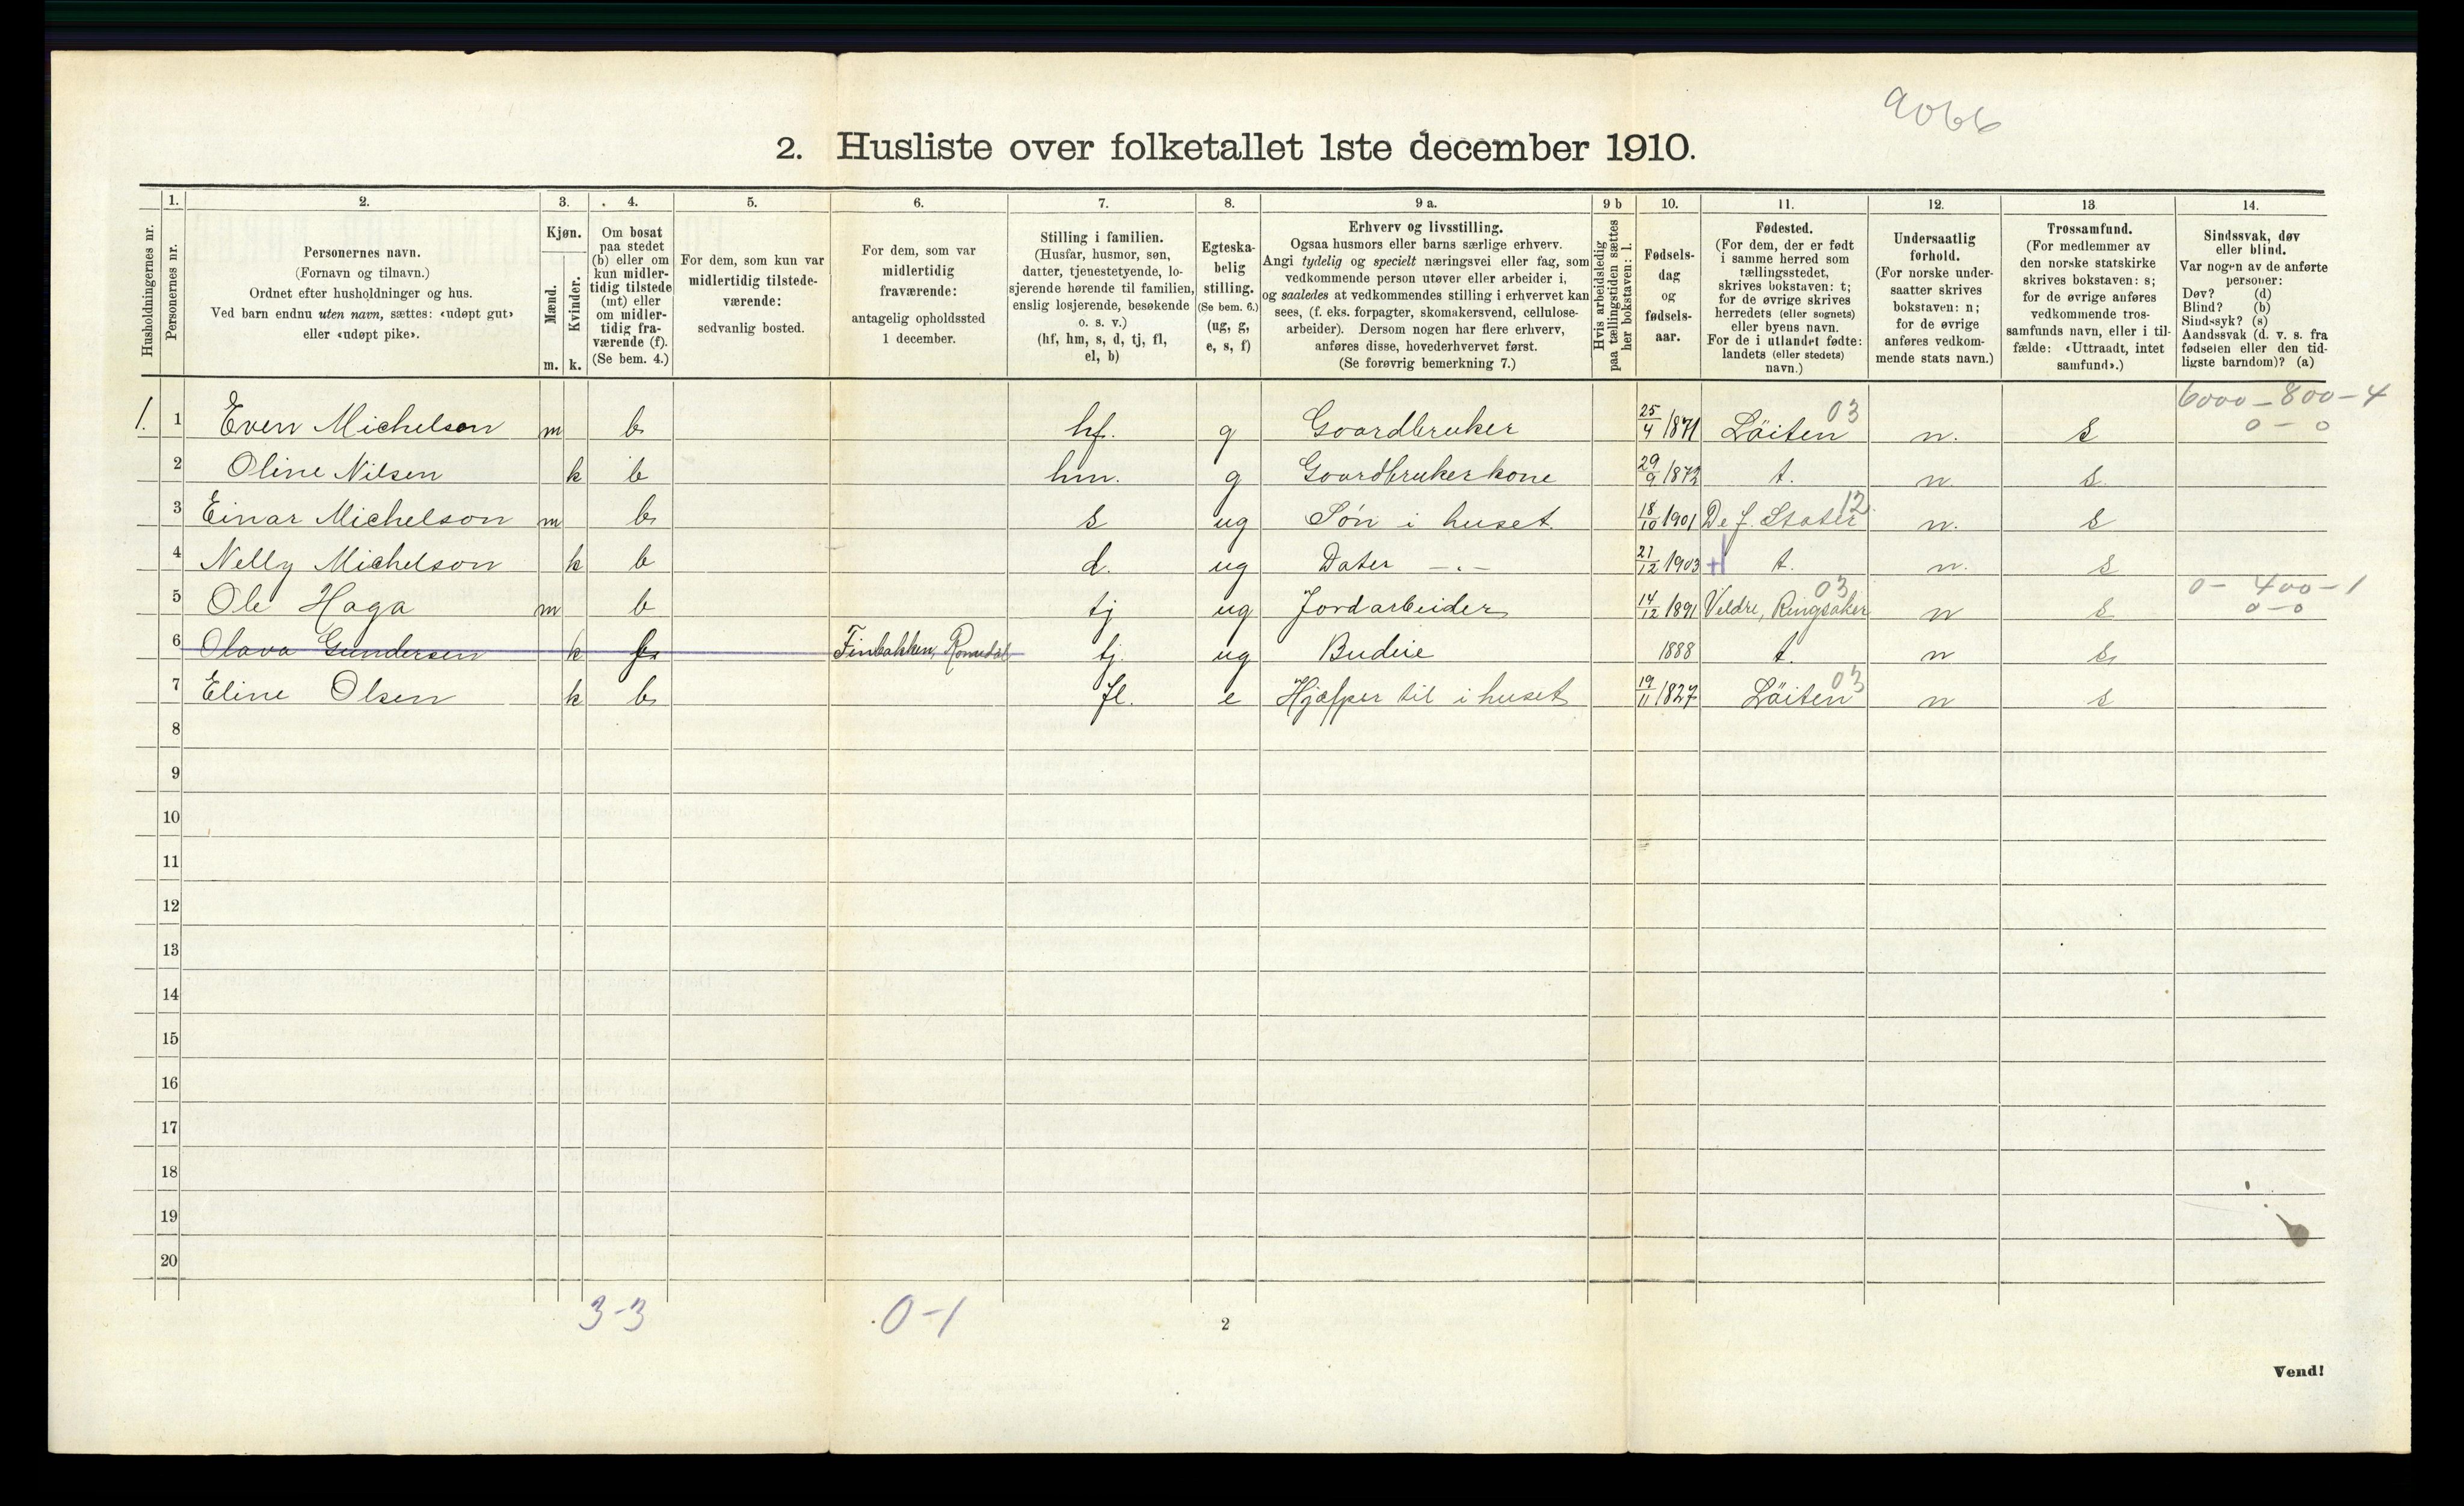 9066
2. Husliste over folketallet 1ste december 1910.
Husholdningernes nr.
1. Personernes nr.
2. Personernes navn. (Fornavn og tilnavn.) Ordnet efter husholdninger og hus. Ved barn endnu uten navn, sættes: «udøpt gut» eller «udøpt pike».
3. Kjøn. Mænd. m. Kvinder. k.
4. Om bosat paa stedet (b) eller om kun midlertidig tilstede (mt) eller om midlertidig fraværende (f). (Se bem. 4.)
5. For dem, som kun var midlertidig tilstedeværende: sedvanlig bosted.
6. For dem, som var midlertidig fraværende: antagelig opholdssted 1 december.
7. Stilling i familien. (Husfar, husmor, søn, datter, tjenestetyende, losjerende hørende til familien, enslig losjerende, besøkende o. s. v.) (hf, hm, s, d, tj, fl, el, b)
8. Egteskabelig stilling. (Se bem. 6.) (ug, g, e, s, f)
9 a. Erhverv og livsstilling. Ogsaa husmors eller barns særlige erhverv. Angi tydelig og specielt næringsvei eller fag, som vedkommende person utøver eller arbeider i, og saaledes at vedkommendes stilling i erhvervet kan sees, (f. eks. forpagter, skomakersvend, cellulosearbeider). Dersom nogen har flere erhverv, anføres disse, hovederhvervet først. (Se forøvrig bemerkning 7.)
9 b Hvis arbeidsledig paa tællingstiden sættes her bokstaven: l.
10. Fødselsdag og fødselsaar.
11. Fødested. (For dem, der er født i samme herred som tællingsstedet, skrives bokstaven: t; for de øvrige skrives herredets (eller sognets) eller byens navn. For de i utlandet fødte: landets (eller stedets) navn.)
12. Undersaatlig forhold. (For norske undersaatter skrives bokstaven: n; for de øvrige anføres vedkommende stats navn.)
13. Trossamfund. (For medlemmer av den norske statskirke skrives bokstaven: s; for de øvrige anføres vedkommende trossamfunds navn, eller i tilfælde: «Uttraadt, intet samfund».)
14. Sindssvak, døv eller blind. Var nogen av de anførte personer: Døv? (d) Blind? (b) Sindssyk? (s) Aandssvak (d. v. s. fra fødselen eller den tidligste barndom)? (a)
1. 1 Even Michelson m b hf. g Gaardbruker 25/4 1871 Löiten 03 n. s 6000 - 800 - 4 0 - 0
2 Oline Nilsen k b hm. g Gaardbrukerkone 29/9 1872 t. n. s.
3 Einar Michelson m b s ug Søn i huset. 18/10 1901 De f. Stater 12 n. s
4 Nelly Michelson k b d. ug Dater -.- 21/12 1903 t. n. s
5 Ole Haga m b tj ug Jordarbeider 14/12 1891 Veldre, Ringsaker 03 n s 0 - 400 - 1 0 - 0
6 Olava Gundersen k f Finbakken, Romedal tj. ug Budeie 1888 t. n s
7 Eline Olsen k b fl. e Hjælper til i huset 19/11 1827 Löiten 03 n s
8
9
10
11
12
13
14
15
16
17
18
19
20
3-3 0-1
2
Vend!